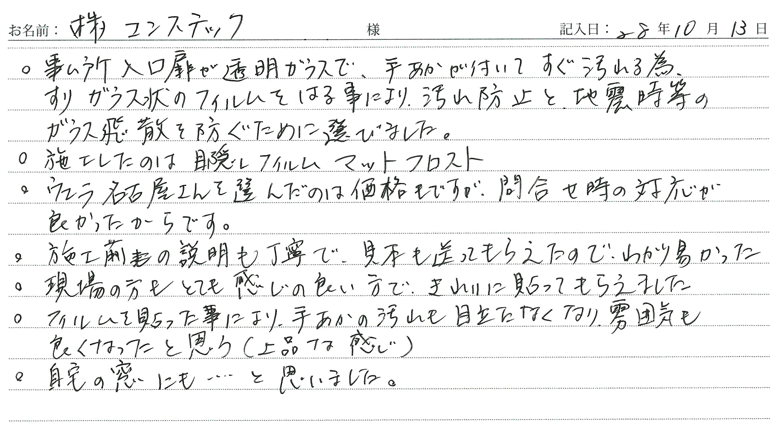 お名前: (株) コンステック 様 記入日: 28年10月13日
○ 事ム所入口扉が透明ガラスで、手あかが付いてすぐ汚れる為、
すりガラス状のフィルムをはる事により、汚れ防止と、地震時等の
ガラス飛散を防ぐために選びました。
○ 施工したのは目隠しフィルム マットフロスト
○ ウエラ名古屋さんを選んだのは価格もですが、問合せ時の対応が
良かったからです。
○ 施工前の説明も丁寧で、見本も送ってもらえたので、わかり易かった
○ 現場の方もとても感じの良い方で、きれいに貼ってもらえました
○ フィルムを貼った事により、手あかの汚れも目立たなくなり、雰囲気も
良くなったと思う(上品な感じ)
○ 自宅の窓にも‥‥と思いました。